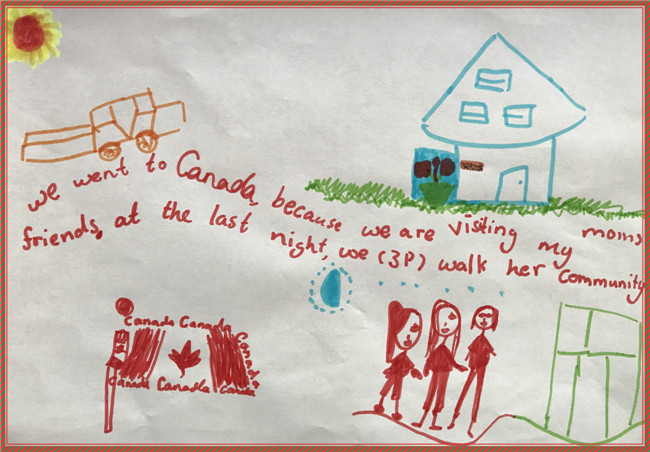 we went to Canada, because we are visiting my moms
friends, at the last night, we (3P) walk her community
Canada Canada
Canada
Canada Canada Canada